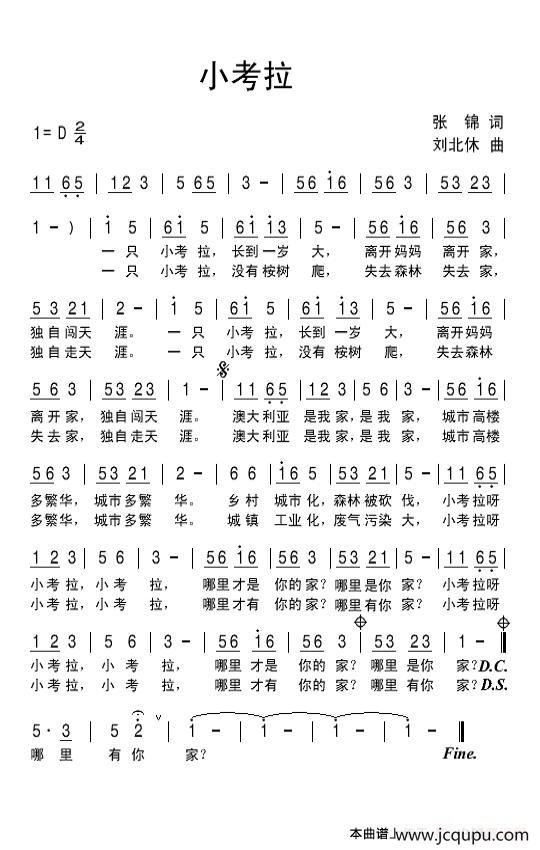 小考拉
1=D 2/4
张 锦 词
刘北休 曲
11 65 | 123 | 5 65 | 3 - | 56 16 | 56 3 | 53 23 |
1 - ) | 1 5 | 61 5 | 61 13 | 5 - | 56 16 | 56 3 |
一 只 小考 拉, 长到 一岁 大, 离开 妈妈 离开 家,
一 只 小考 拉, 没有 桉树 爬, 失去 森林 失去 家,
53 21 | 2 - | 1 5 | 61 5 | 61 13 | 5 - | 56 16 |
独自 闯天 涯。 一 只 小考 拉, 长到 一岁 大, 离开 妈妈
独自 走天 涯。 一 只 小考 拉, 没有 桉树 爬, 失去 森林
56 3 | 53 23 | 1 - | 11 65 | 123 | 5 65 | 3 - | 56 16 |
离开 家, 独自 闯天 涯。 澳大 利亚 是我 家, 是 我 家, 城市 高楼
失去 家, 独自 走天 涯。 澳大 利亚 是我 家, 是 我 家, 城市 高楼
56 3 | 53 21 | 2 - | 56 | 16 5 | 53 21 | 2 - | 11 65 |
多繁 华, 城市 多繁 华。 乡 村 城市 化, 森林 被砍 伐, 小考 拉呀
多繁 华, 城市 多繁 华。 城 镇 工业 化, 废气 污染 大, 小考 拉呀
123 | 5 6 | 3 - | 56 16 | 56 3 | 53 21 | 2 - | 11 65 |
小考 拉, 小 考 拉, 哪里 才是 你的 家? 哪里 是你 家? 小考 拉呀
小考 拉, 小 考 拉, 哪里 才有 你的 家? 哪里 有你 家? 小考 拉呀
123 | 5 6 | 3 - | 56 16 | 56 3 | 53 23 | 1 - ‖
小考 拉, 小 考 拉, 哪里 才是 你的 家? 哪里 是你 家? D.C.
小考 拉, 小 考 拉, 哪里 才有 你的 家? 哪里 有你 家? D.S.
5 · 3 | 5 2 ∨ | 1 - | 1 - | 1 - | 1 - ‖
哪 里 有 你 家? Fine.
本曲谱 www.jcqupu.com